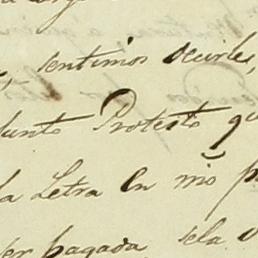 sentimos decirles,
Junto Protesto qu
la Letra en mio p
ser pagada sela